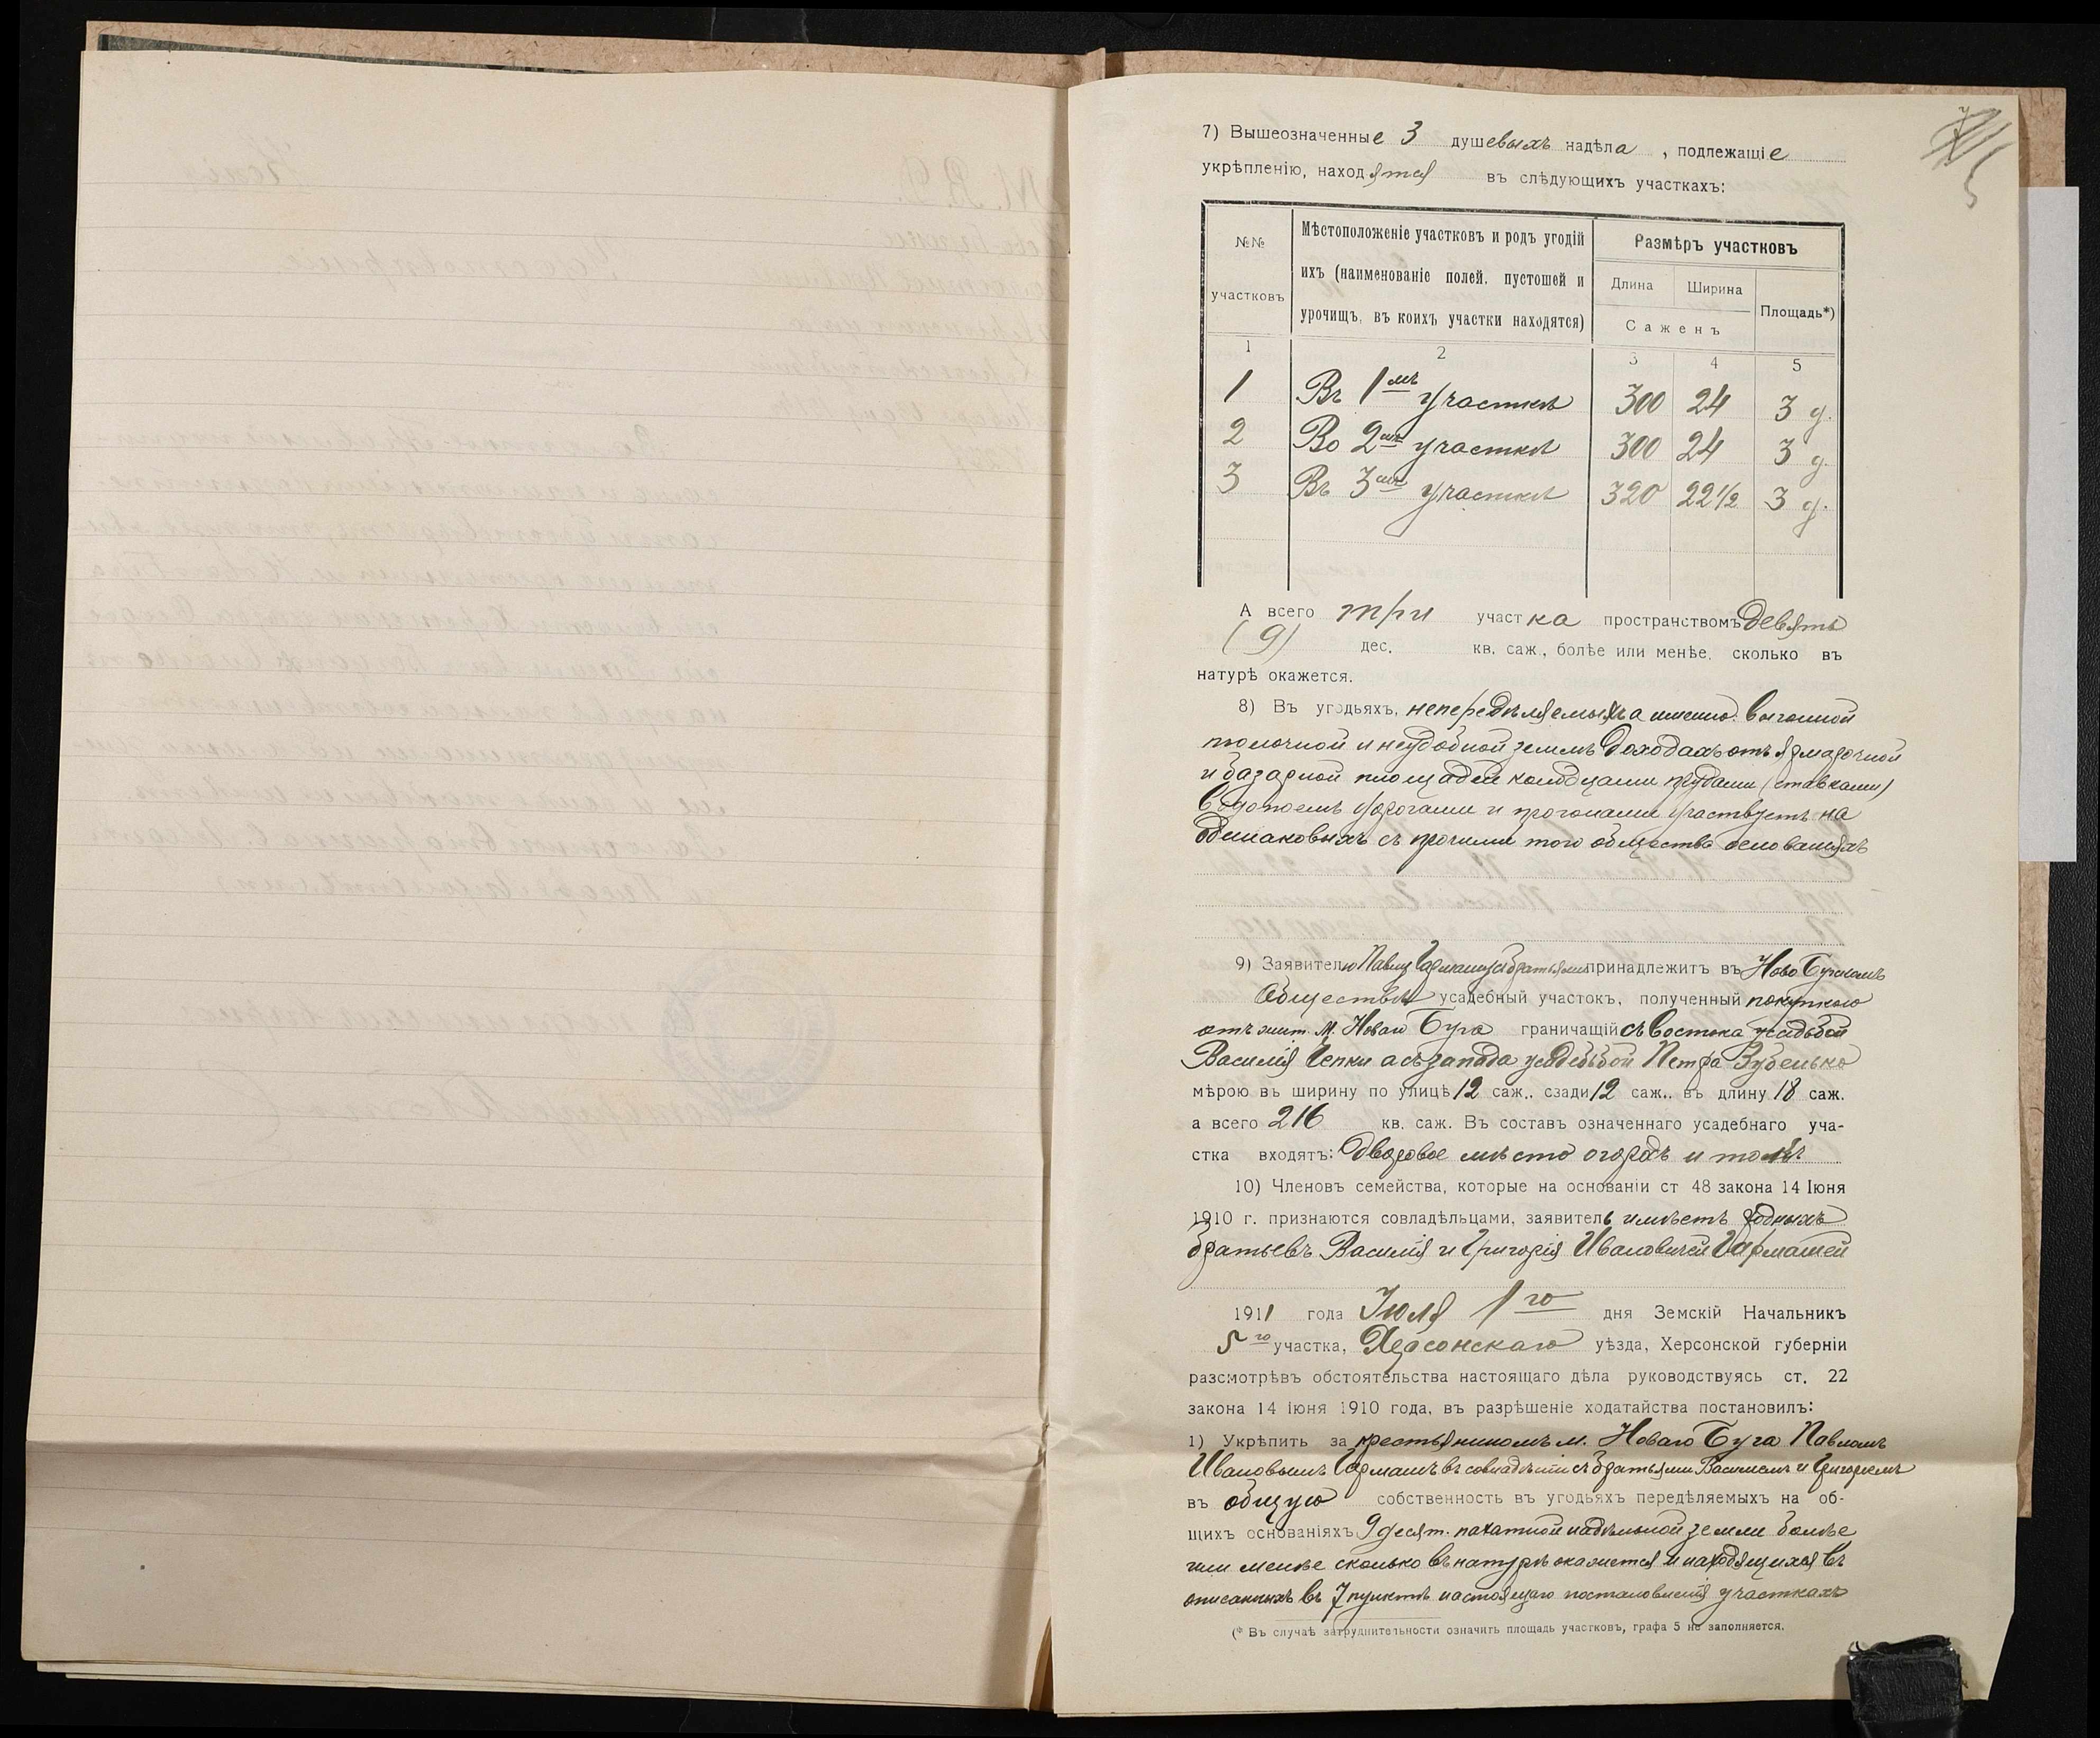 7) Вышеозначенные 3 душевыхъ надѣла , подлежащіе
укрѣпленію, находятся въ слѣдующихъ участкахъ:
№№ участковъ
Мѣстоположеніе участковъ и родъ угодій
ихъ (наименованіе полей, пустошей и
урочищъ, въ коихъ участки находятся)
Размѣръ участковъ
Длина Ширина Площадь*)
Сажень
1 2 3 4 5
1 Въ 1мъ участкѣ 300 24 3 д.
2 Во 2мъ участкѣ 300 24 3 д.
3 Въ 3мъ участкѣ 320 22 1/2 3 д.
А всего три участка пространствомъ девять
(9) дес. кв. саж., болѣе или менѣе, сколько въ
натурѣ окажется.
8) Въ угодьяхъ, непередѣляемыхъ а именно: выгонной
толочной и неудобной землѣ доходахъ отъ ярмарочной
и базарной площадей колодцами прудами (ставками)
водопоемъ дорогами и прогонами участвуетъ на
одинаковыхъ съ прочими того общества основаніяхъ
9) Заявителю Павлу Гармашу съ братьями принадлежитъ въ Ново Бугскомъ
Обществѣ усадебный участокъ, полученный покупкою
отъ жит. М. Новаго Буга граничащій съ востока усадьбой
Василія Чепки а съ запада усадьбой Петра Зубенько
мѣрою въ ширину по улицѣ 12 саж., сзади 12 саж., въ длину 18 саж.
а всего 216 кв. саж. Въ составъ означеннаго усадебнаго уча-
стка входятъ: дворовое мѣсто огородъ и токъ
10) Членовъ семейства, которые на основаніи ст 48 закона 14 Іюня
1910 г. признаются совладѣльцами, заявитель имѣетъ родныхъ
братьевъ Василія и Григорія Ивановичей Гармашей
1911 года Іюля 1го дня Земскій Начальникъ
5го участка, Херсонскаго уѣзда, Херсонской губерніи
разсмотрѣвъ обстоятельства настоящаго дѣла руководствуясь ст. 22
закона 14 іюня 1910 года, въ разрѣшеніе ходатайства постановилъ:
1) Укрѣпить за крестьяниномъ м. Новаго Буга Павломъ
Ивановымъ Гармашъ въ совладѣніи съ братьями Василіемъ и Григоріемъ
въ общую собственность въ угодьяхъ передѣляемыхъ на об-
щихъ основаніяхъ 9 десят. пахатной надѣльной земли болѣе
или менѣе сколько въ натурѣ окажется и находящихся въ
описанныхъ въ 7 пунктѣ настоящаго постановленія участкахъ
(* Въ случаѣ затруднительности означить площадь участковъ, графа 5 не заполняется.